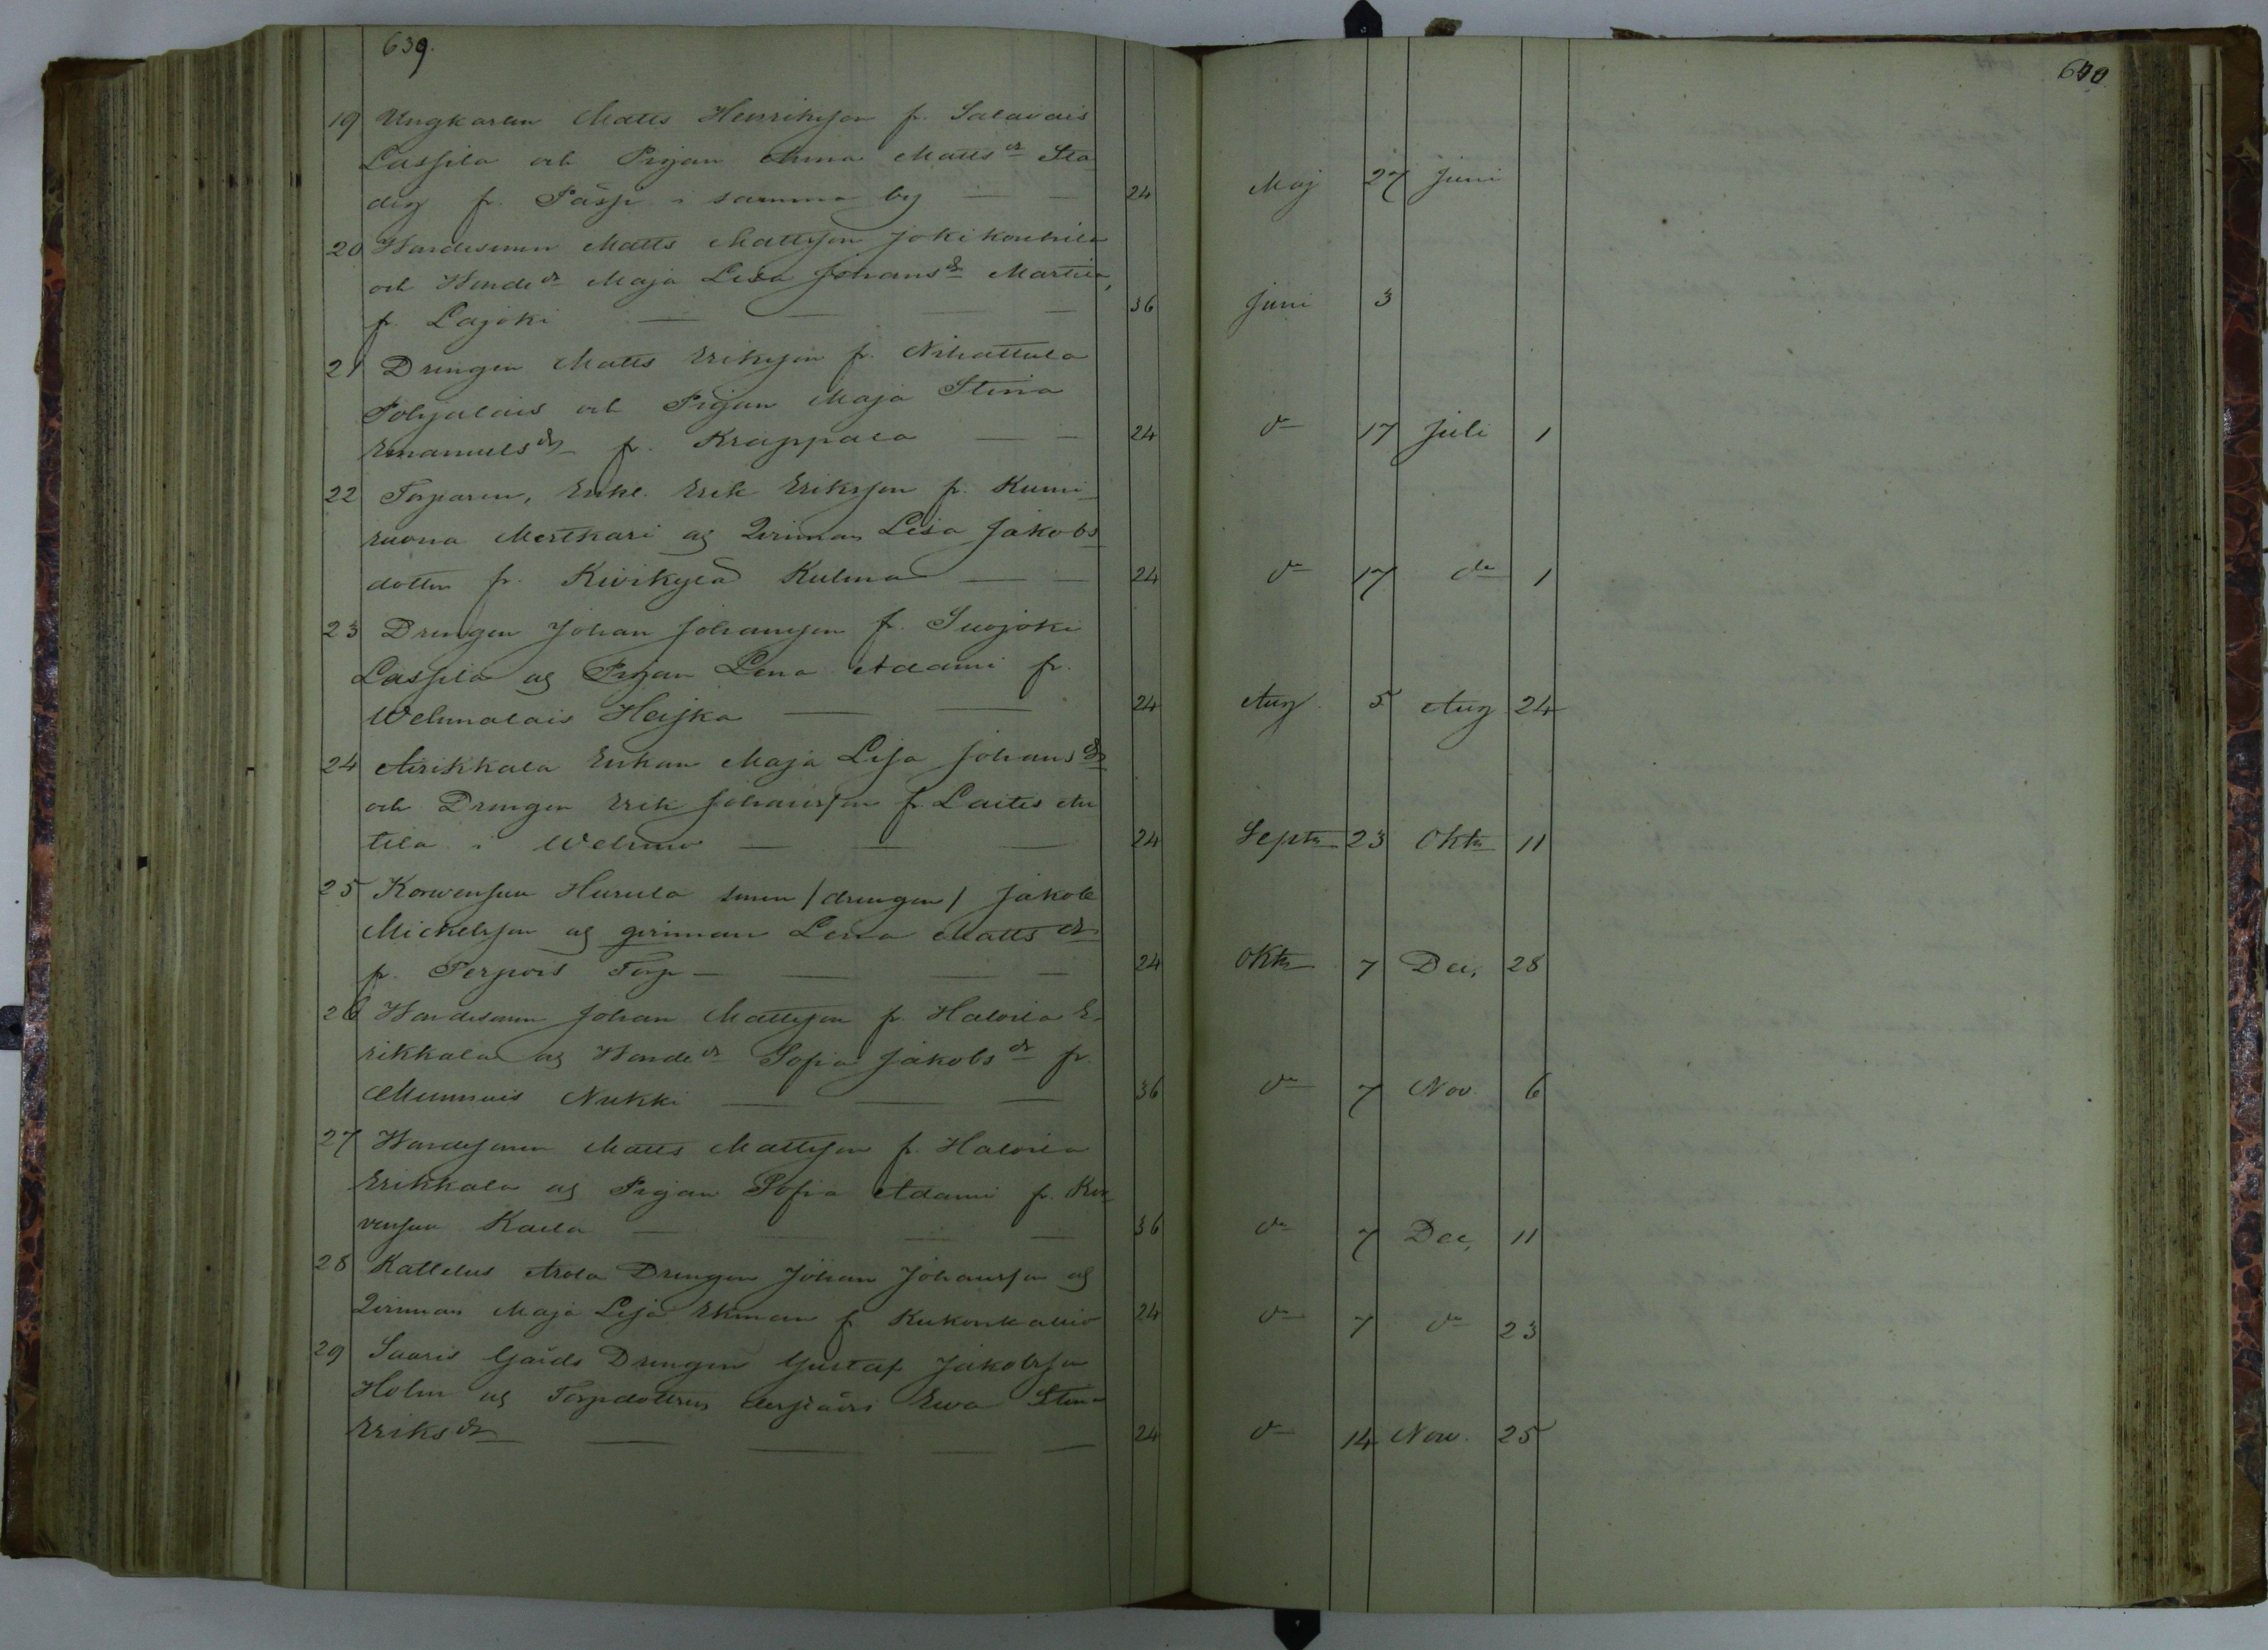 639.
640
19 Ungkarlen Matts Henriksson fr. Salavais
Lassila och Pigan Anna Matts dr Sta
dig fr. Päsz i samma by — — 24 Maj 27 Juni
20 Bondesonen Matts Mattsson Jokikouhila
och Bonde dr Maja Lisa Johans dr Martila,
fr. Lajoki — — — — 36 Juni 3
21 Drengen Matts Eriksson fr. Nihattula
Pohjalais och Pigan Maja Stina
Emanuels dr fr. Krappala — — 24 do 17 Juli 1
22 Torparen, Enkl. Erik Eriksson fr. Kumi
ruona Mertkari og Qvinnan Lisa Jakobs
dotter fr. Kivikylä Kulma — — 24 do 17 do 1
23 Drengen Johan Johansson fr. Suojoki
Lassila og Pigan Lena Adami fr.
Wehmalais Heiska — — 24 Aug. 5 Aug 24
24 Airikkala Enkan Maja Lisa Johans dr
och Drengen Erik Johansson fr. Laitis An
tila i Wehmo — — — 24 Septr 23 Oktr 11
25 Korvensuu Hurula sonen / drengen / Jakob
Michelsson og qvinnan Lena Matts dr
fr. Torp — — — 24 Oktr 7 Dec, 28
26 Bondesonen Johan Mattsson fr. Haloila E
rikkala og Bonde dr Sofia Jakobs dr fr.
Munnais Nukki — — — 36 do 7 Nov. 6
27 Bondesonen Matts Mattsson fr. Haloila
Erikkala og Pigan Sofia Adami fr. Kor
vensuu Kaila — — — — 36 do 7 Dec, 11
28 Kallelus Arola Drengen Johan Johansson og
Qvinnan Maja Lisa Ekman fr Kukonkallio 24 do 7 do 23
29 Saaris Gårds Drengen Gustaf Jakobsson
Holm og Torpdottren Ewa Stina
Eriks dr — — — — 24 do 14 Nov. 25